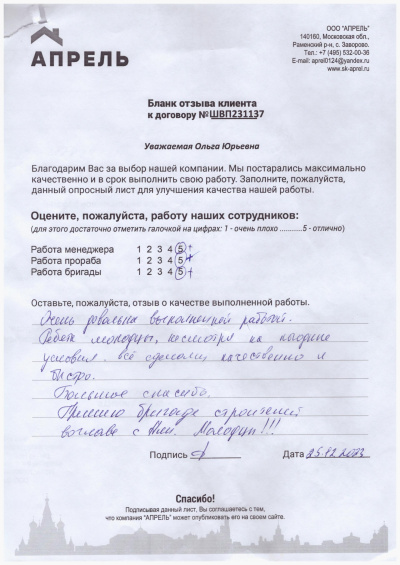 АПРЕЛЬ
ООО "АПРЕЛЬ"
140160, Московская обл.,
Раменский р-н, с. Заворово.
Тел.: +7 (495) 532-00-36
E-mail: aprel0124@yandex.ru
www.sk-aprel.ru
Бланк отзыва клиента
к договору №ШВП231137
Уважаемая Ольга Юрьевна
Благодарим Вас за выбор нашей компании. Мы постарались максимально
качественно и в срок выполнить свою работу. Заполните, пожалуйста,
данный опросный лист для улучшения качества нашей работы.
Оцените, пожалуйста, работу наших сотрудников:
(для этого достаточно отметить галочкой на цифрах: 1 - очень плохо ...........5 - отлично)
Работа менеджера 1 2 3 4 5 +
Работа прораба 1 2 3 4 5 +
Работа бригады 1 2 3 4 5 +
Оставьте, пожалуйста, отзыв о качестве выполненной работы.
Очень довольна выполненной работой.
Ребята молодцы, несмотря на погодные
условия. всё сделали качественно и
быстро.
Большое спасибо.
бригаде строителей
во главе с Молодцы!!!
Подпись
Дата 25.12.2023
Спасибо!
Подписывая данный лист, Вы соглашаетесь с тем,
что компания "АПРЕЛЬ" может опубликовать его на своем сайте.